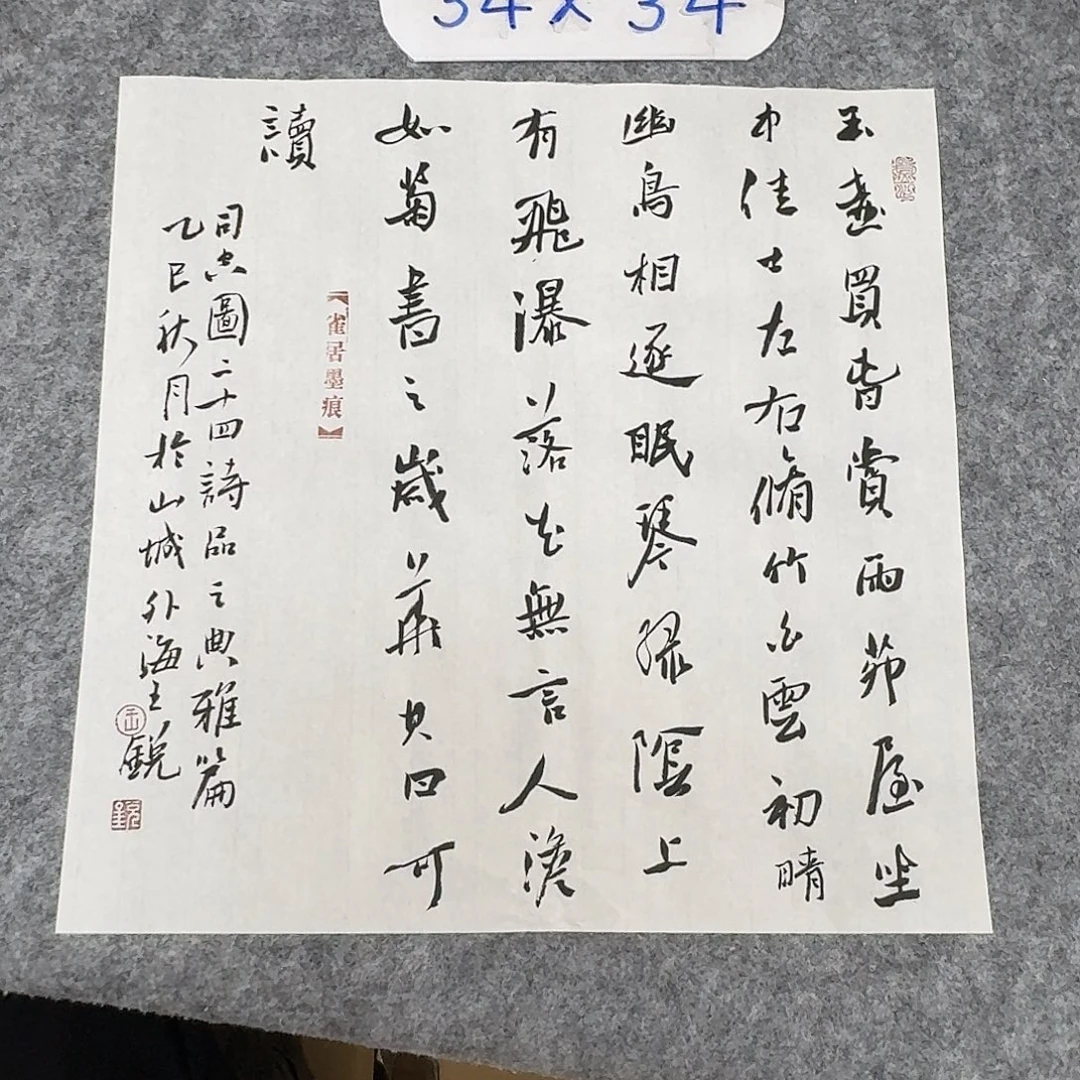 34×34
玉壺買春賞雨茆屋坐
中佳士左右脩竹白雲初晴
幽鳥相逐眠琴綠陰上
有飛瀑落花無言人澹
如菊書之歲華其曰可
【雀居墨痕】
讀
司空圖二十四詩品之典雅篇
乙巳秋月於山城外海王銳